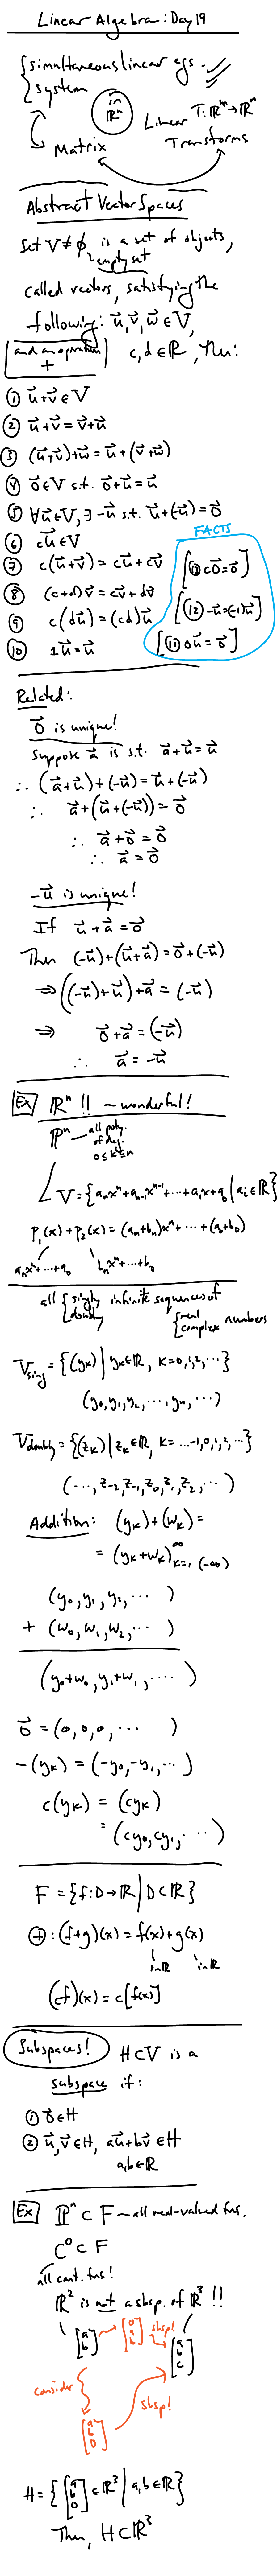 Linear Algebra: Day 19
simultaneous linear eqs.
system
in ℝⁿ
Linear T: ℝᵐ→ℝⁿ
Matrix
Transforms
Abstract Vector Spaces
Set V ≠ ∅ is a set of objects,
empty set
called vectors, satisfying the
following: u⃗, v⃗, w⃗ ∈ V,
and an operation +
c, d ∈ ℝ, then:
① u⃗+v⃗ ∈ V
② u⃗+v⃗ = v⃗+u⃗
③ (u⃗+v⃗)+w⃗ = u⃗+(v⃗+w⃗)
④ 0⃗ ∈ V s.t. 0⃗+u⃗ = u⃗
⑤ ∀u⃗∈V, ∃ -u⃗ s.t. u⃗+(-u⃗) = 0⃗
FACTS
⑥ cu⃗ ∈ V
⑦ c(u⃗+v⃗) = cu⃗+cv⃗
[⑬ c0⃗ = 0⃗]
⑧ (c+d)v⃗ = cv⃗+dv⃗
[⑫ -u⃗ = (-1)u⃗]
⑨ c(du⃗) = (cd)u⃗
⑩ 1u⃗ = u⃗
[⑪ 0u⃗ = 0⃗]
Related:
0⃗ is unique!
Suppose a⃗ is s.t. a⃗+u⃗ = u⃗
∴ (a⃗+u⃗)+(-u⃗) = u⃗+(-u⃗)
∴ a⃗+(u⃗+(-u⃗)) = 0⃗
∴ a⃗+0⃗ = 0⃗
∴ a⃗ = 0⃗
-u⃗ is unique!
If u⃗+a⃗ = 0⃗
Then (-u⃗)+(u⃗+a⃗) = 0⃗+(-u⃗)
⇒ ((-u⃗)+u⃗)+a⃗ = (-u⃗)
⇒ 0⃗+a⃗ = (-u⃗)
∴ a⃗ = -u⃗
Ex ℝⁿ !! ~ wonderful!
ℙⁿ — all poly. of deg. 0≤k≤n
V = {aₙxⁿ+aₙ₋₁xⁿ⁻¹+⋯+a₁x+a₀ | aᵢ∈ℝ}
p₁(x)+p₂(x) = (aₙ+bₙ)xⁿ+⋯+(a₀+b₀)
aₙxⁿ+⋯+a₀ bₙxⁿ+⋯+b₀
all {singly doubly infinite sequences of
{real complex numbers
V_sing = {(yₖ) | yₖ∈ℝ, k=0,1,2,⋯}
(y₀,y₁,y₂,⋯,yₙ,⋯)
V_doubly = {(zₖ) | zₖ∈ℝ, k=⋯-1,0,1,2,⋯}
(⋯,z₋₂,z₋₁,z₀,z₁,z₂,⋯)
Addition: (yₖ)+(wₖ) =
= (yₖ+wₖ)^∞_{k=1, (-∞)}
(y₀,y₁,y₂,⋯ )
+ (w₀,w₁,w₂,⋯ )
(y₀+w₀,y₁+w₁,⋯⋯)
0⃗ = (0,0,0,⋯ )
-(yₖ) = (-y₀,-y₁,⋯)
c(yₖ) = (cyₖ)
= (cy₀,cy₁,⋯)
F = {f: D→ℝ | D⊂ℝ}
⊕: (f+g)(x) = f(x)+g(x)
in ℝ in ℝ
(cf)(x) = c[f(x)]
Subspaces! H⊂V is a
subspace if:
① 0⃗∈H
② u⃗,v⃗∈H, au⃗+bv⃗∈H
a,b∈ℝ
Ex ℙⁿ ⊂ F ~ all real-valued fns.
C⁰ ⊂ F
all cont. fns!
ℝ² is not a sbsp. of ℝ³ !!
[a b] → [0 a b] sbsp! → [a b c]
consider
sbsp!
[a b 0]
H = {[a b 0] ∈ℝ³ | a,b∈ℝ}
Then, H⊂ℝ³